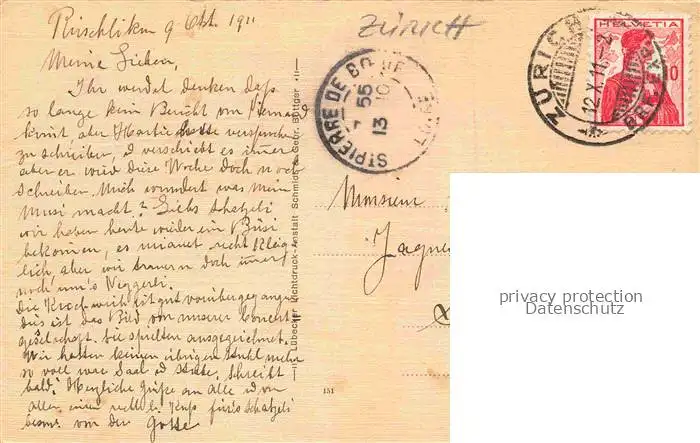 Rüschlikon 9 Okt. 1911
ZÜRICH
Meine Lieben,
Ihr werdet denken daß
so lange kein Bericht von Niemand
kommt aber Martie hatte versprochen
zu schreiben, & verschiebt es immer
aber er wird diese Woche doch noch
schreiben. Mich wundert was mein
Musi macht? Liebs Schatzeli
wir haben heute wieder ein Büsi
bekommen, es miauet recht kläg
lich, aber wir trauern doch immer
noch um's Niggerli.
Die ist gut vorübergegangen
dies ist das Bild von unserer Concert
gesellschaft. Sie spielten ausgezeichnet.
Wir hatten keinen übrigen Stuhl mehr
so voll war Saal & Stube, schreibt
bald! Herzliche Grüße an Alle & von
Allen, einen Kuss für's Schatzeli
besond. von der Gotte
ST PIERRE DE
55
13
ZÜRICH
12.X.11.
BRIEFEXP.
HELVETIA
10
Lübecker Lichtdruck-Anstalt Schmidt & Gebr. Böttger
151
Monsieur
privacy protection
Datenschutz